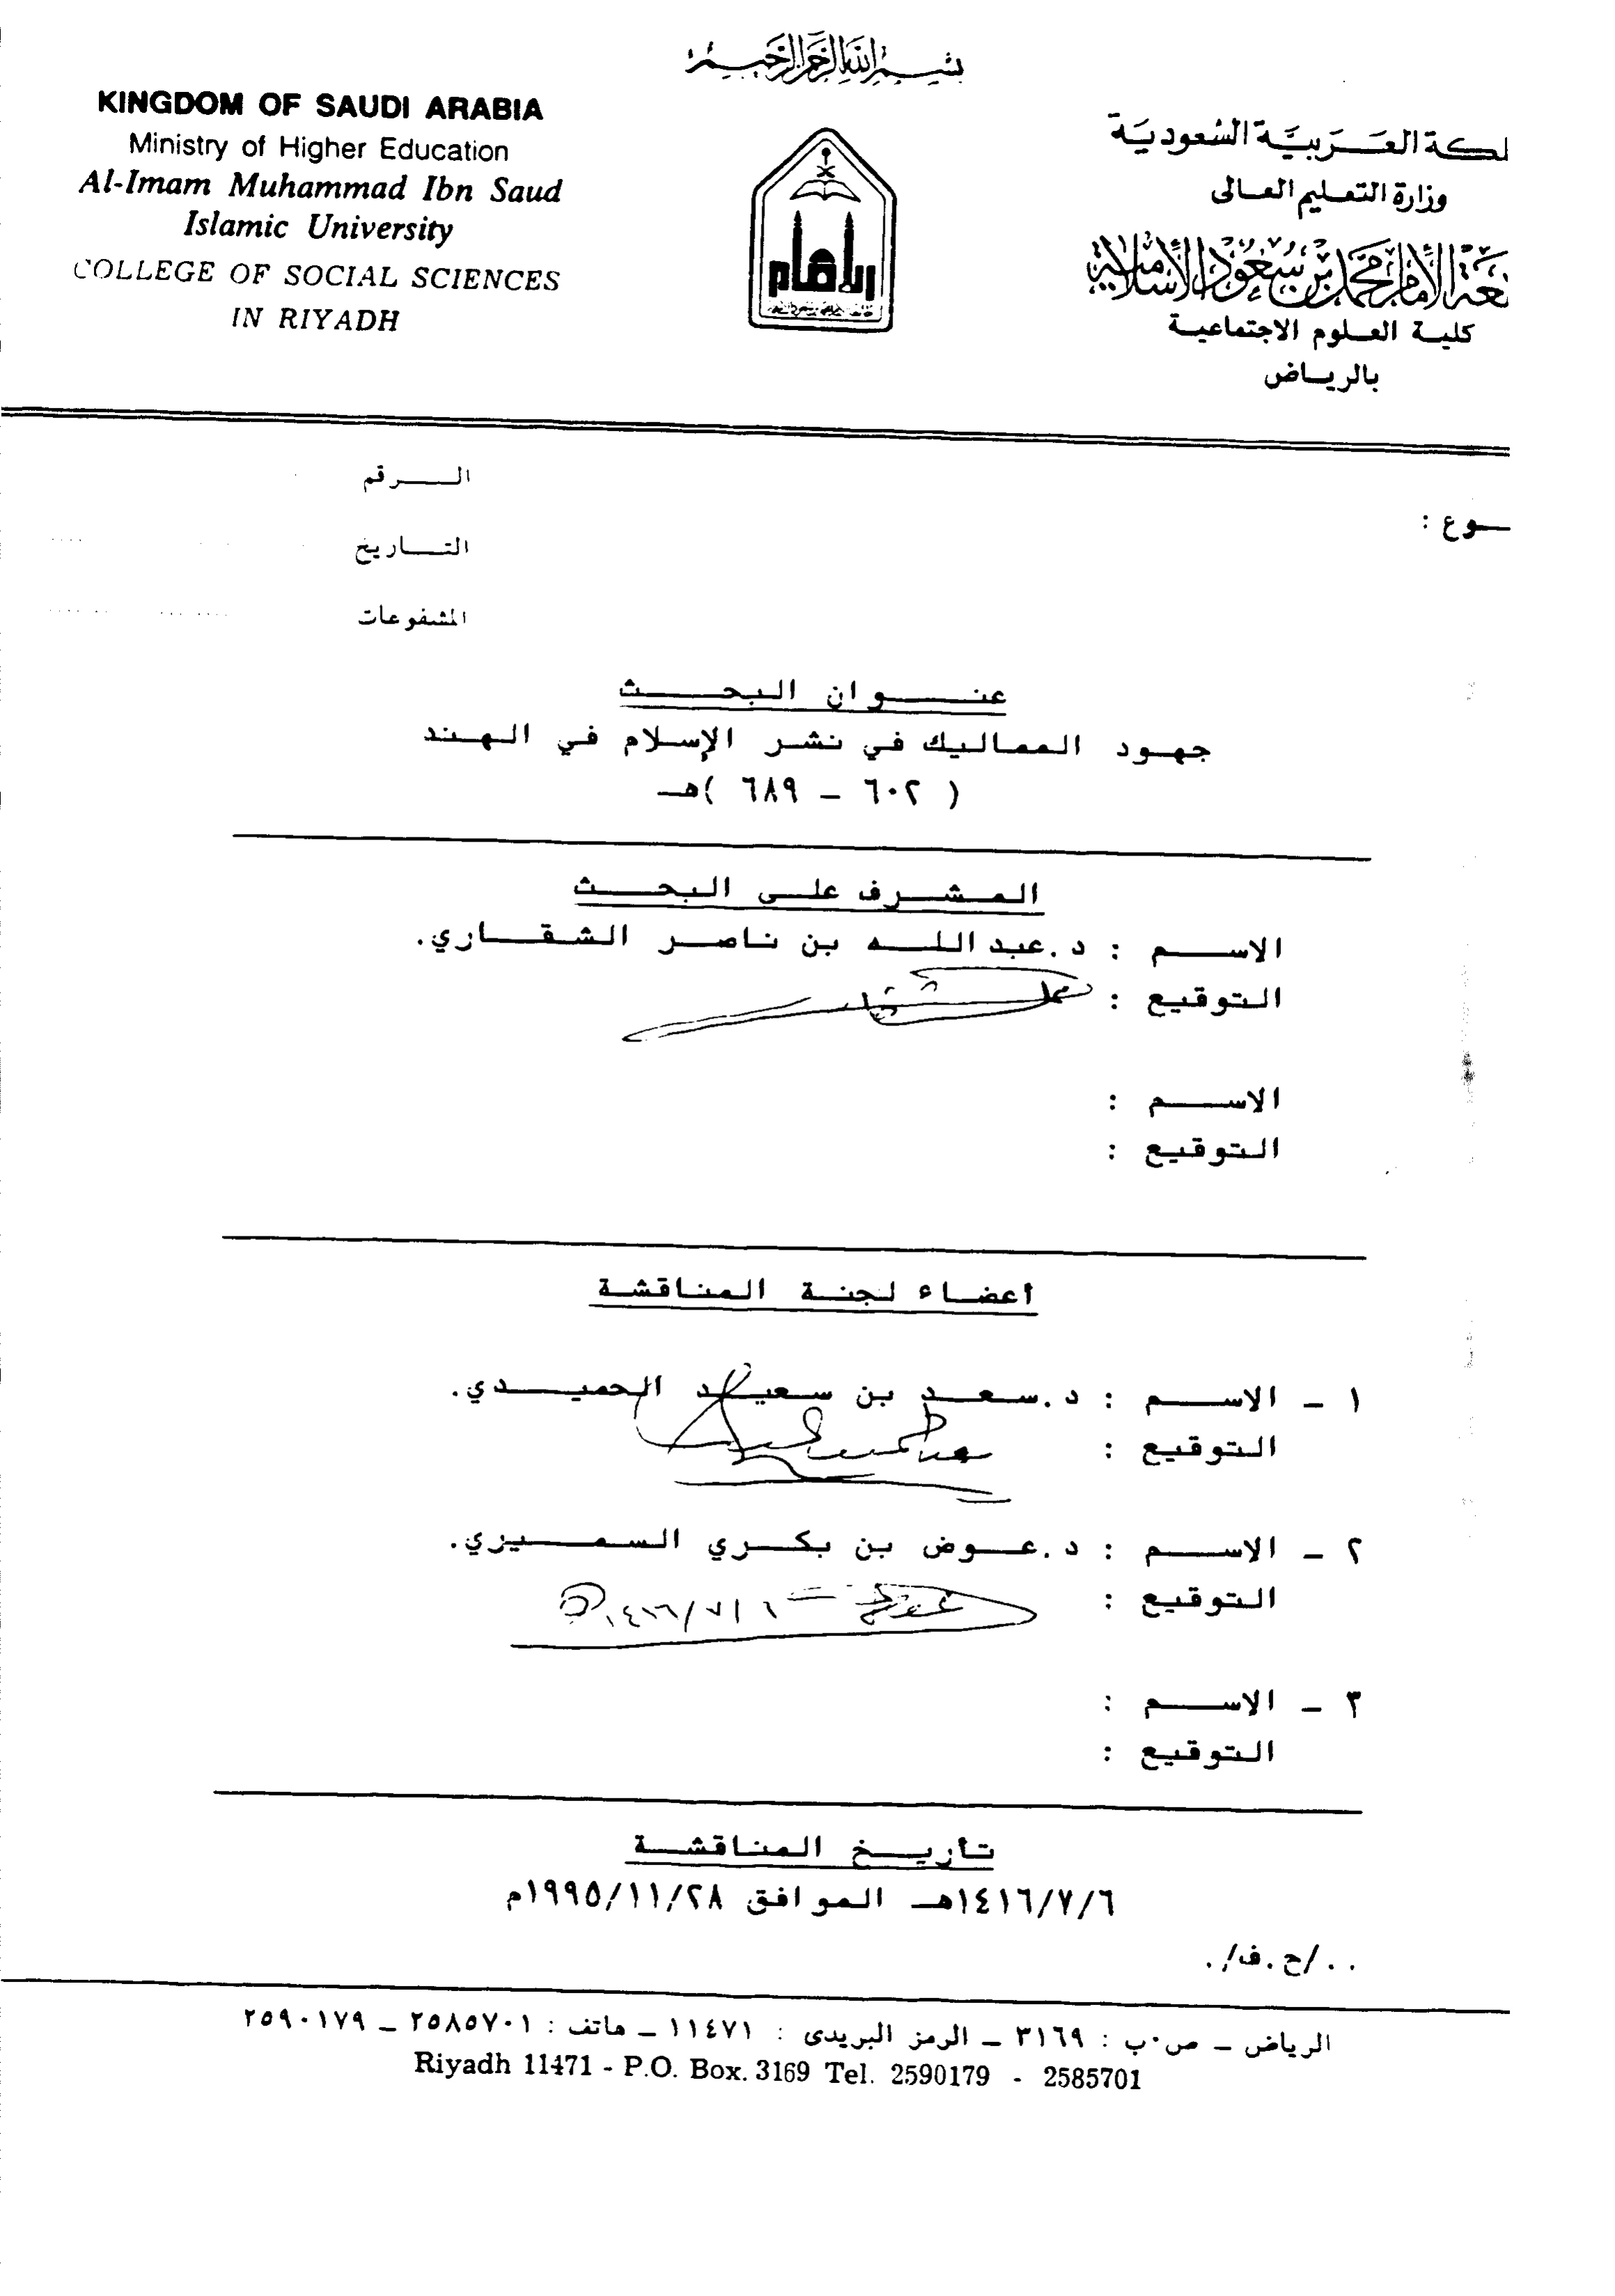 بسم الله الرحمن الرحيم
KINGDOM OF SAUDI ARABIA
Ministry of Higher Education
Al-Imam Muhammad Ibn Saud
Islamic University
COLLEGE OF SOCIAL SCIENCES
IN RIYADH
لكة العربية السعودية
وزارة التعليم العالى
عة الأمام محمد بن سعود الأسلامية
كلية العلوم الاجتماعية
بالرياض
الإمام
الرقم
التاريخ
المشفوعات
وع :
عنوان البحث
جهود المماليك في نشر الإسلام في الهند
( ٦٠٢ - ٦٨٩ )هـ
المشرف على البحث
الاسم : د.عبدالله بن ناصر الشقاري.
التوقيع :
الاسم :
التوقيع :
أعضاء لجنة المناقشة
١ - الاسم : د.سعد بن سعيد الحميدي.
التوقيع :
٢ - الاسم : د.عوض بن بكري السميري.
التوقيع : ١٤١٦/٧/٦
٣ - الاسم :
التوقيع :
تأريخ المناقشة
١٤١٦/٧/٦هـ الموافق ١٩٩٥/١١/٢٨م
../ح.ف/.
الرياض - ص.ب : ٣١٦٩ - الرمز البريدى : ١١٤٧١ - هاتف : ٢٥٨٥٧٠١ - ٢٥٩٠١٧٩
Riyadh 11471 - P.O. Box. 3169 Tel. 2590179 - 2585701